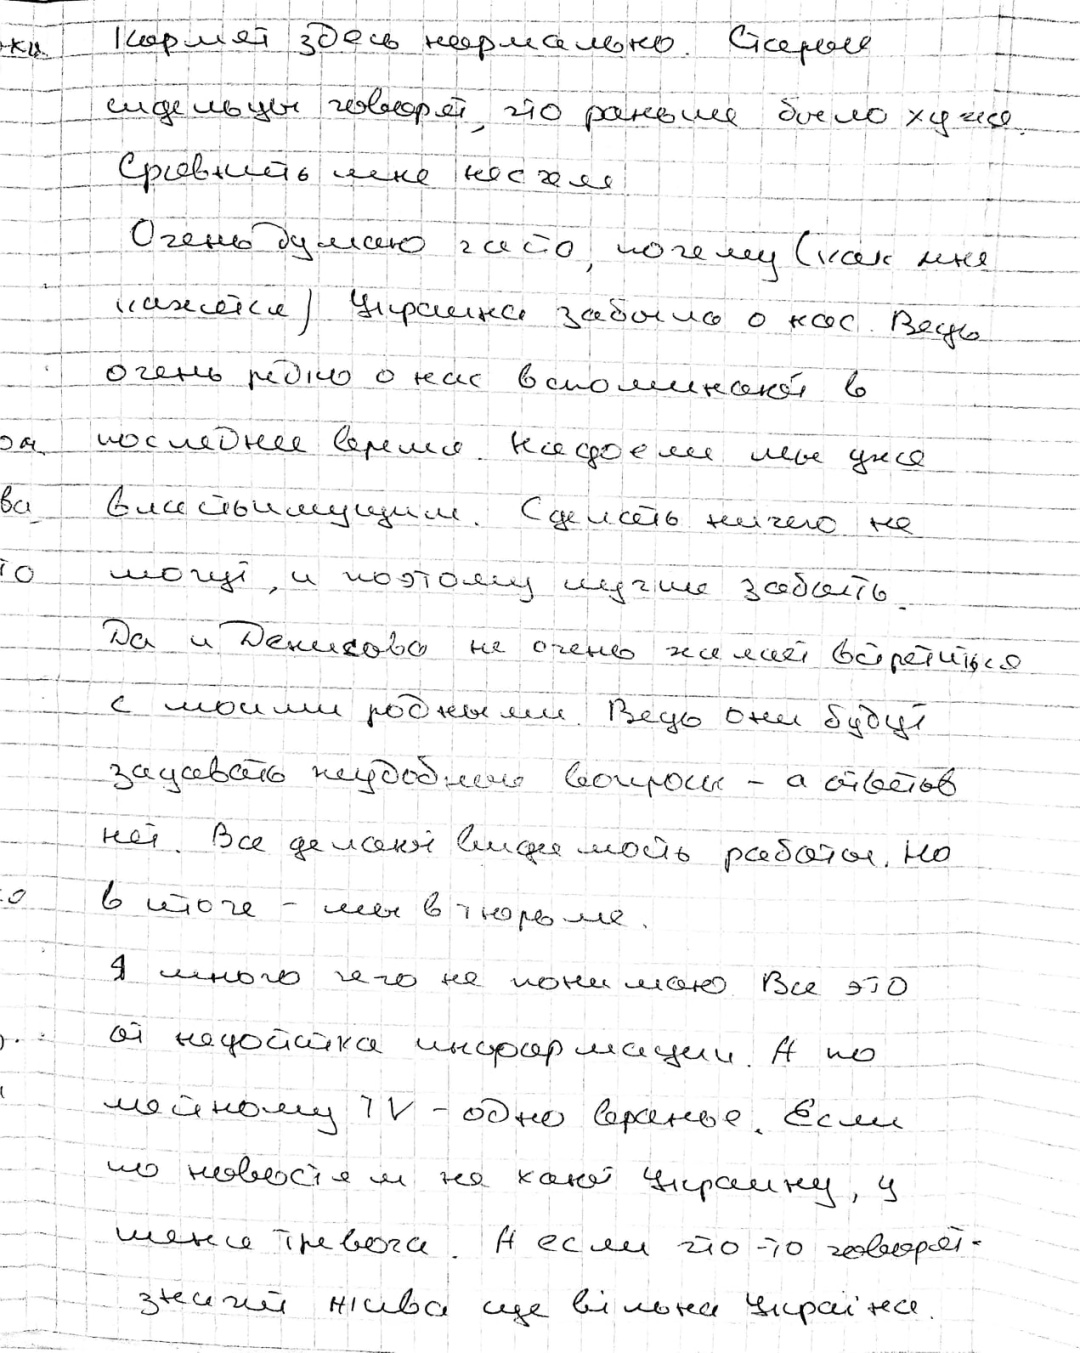 ки. Кормят здесь нормально. Старые
сидельцы говорят, что раньше было хуже.
Сравнить мне не с чем
Очень думаю часто, почему (как мне
кажется) Украина забыла о нас. Ведь
очень редко о нас вспоминают в
ра. последнее время. Надоели мы уже
ва властьимущим. Сделать ничего не
то могут, и поэтому лучше забыть.
Да и Денисова не очень желает встретиться
с моими родными. Ведь они будут
задавать неудобные вопросы – а ответов
нет. Все делают видимость работы. Но
в итоге – мы в тюрьме.
Я много чего не понимаю. Все это
от недостатка информации. А по
местному TV – одно вранье. Если
по новостям не хают Украину, у
меня тревога. А если что-то говорят-
значит жива ще вільна Україна.